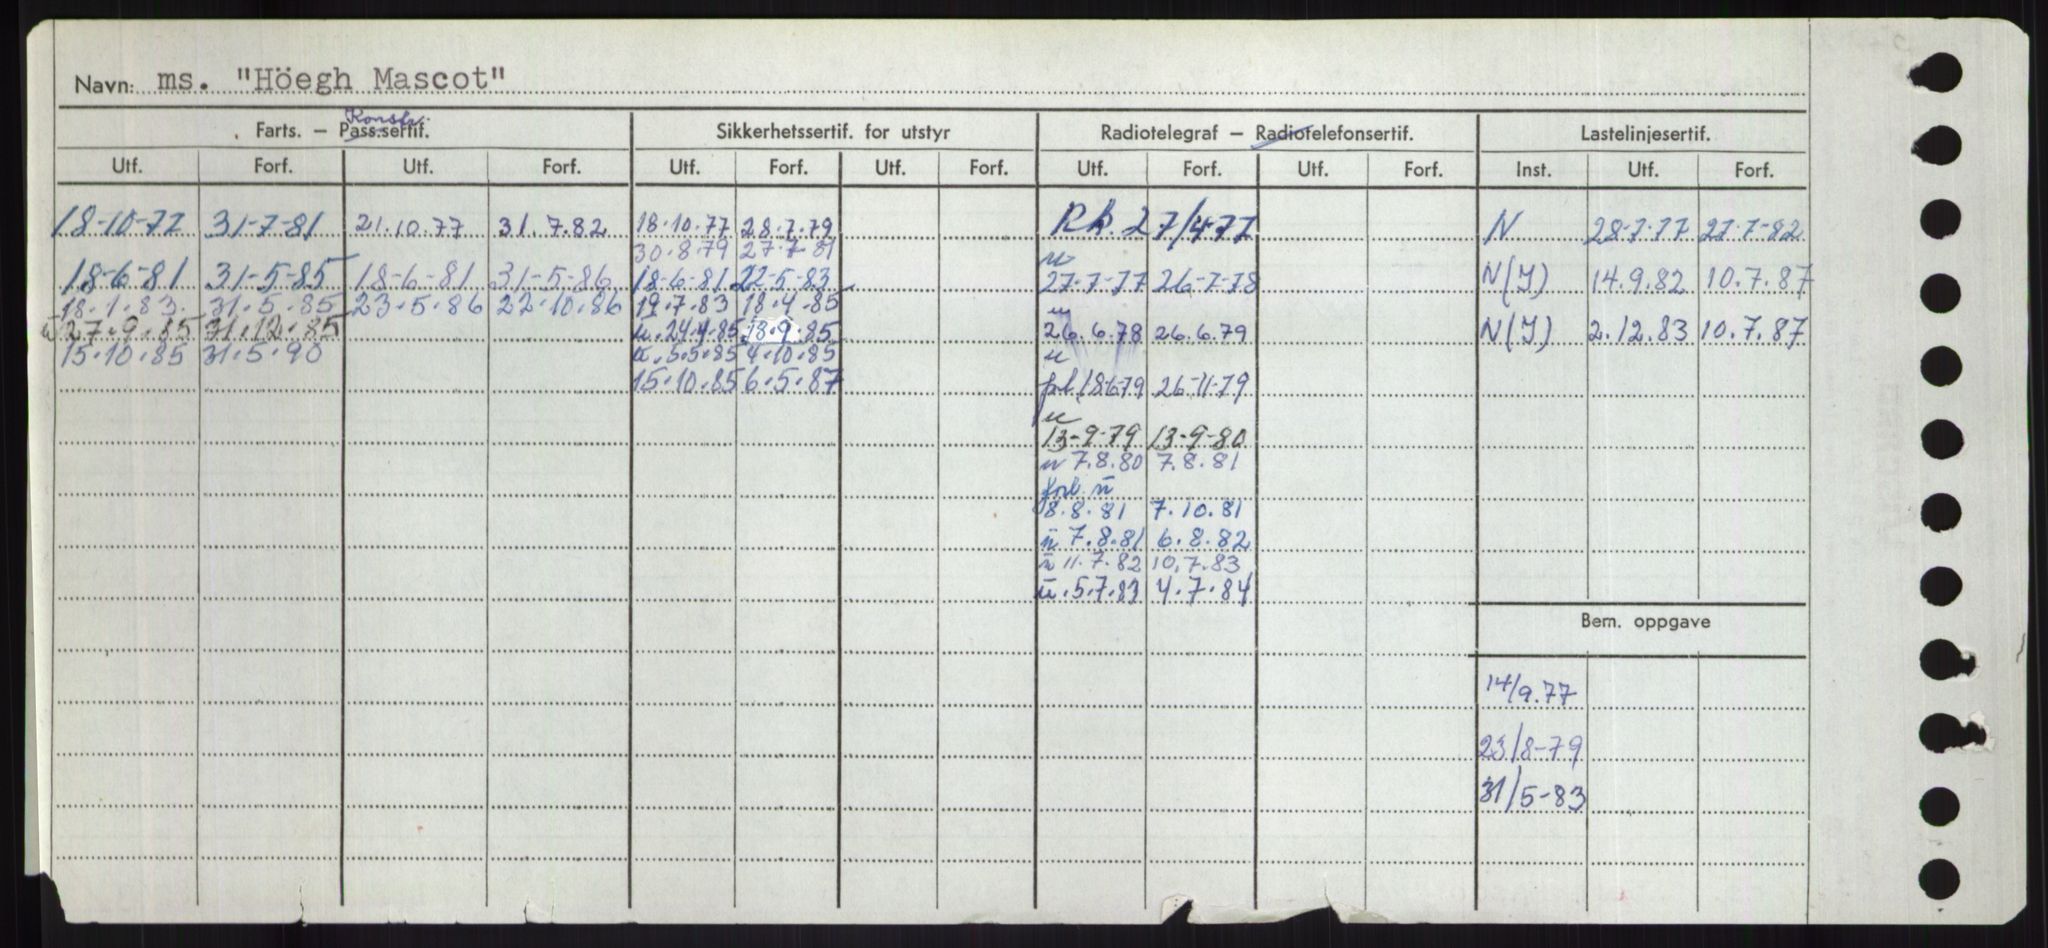 Navn: ms. "Höegh Mascot"
Farts. – Pass.sertif. Konstr. Sikkerhetssertif. for utstyr Radiotelegraf – Radiotelefonsertif. Lastelinjesertif.
Utf. Forf. Utf. Forf. Utf. Forf. Utf. Forf. Utf. Forf. Utf. Forf. Inst. Utf. Forf.
18-10-77 31-7-81 21.10.77 31.7.82 18.10.77 28.7.79 Rk. 27/4-77 N 28-7-77 27-7-82
30.8.79 27.7.81
18-6-81 31-5-85 18-6-81 31-5-86 18-6-81 22-5-83 u 27-7-77 26-7-78 N(I) 14.9.82 10.7.87
18.1.83. 31.5.85 23.5.86 22.10.86 19.7.83 18.4.85
u 27.9.85 31.12.85 u. 24.4.85 18.9.85 u 26.6.78 26.6.79 N(I) 2.12.83 10.7.87
15.10.85 31.5.90 u. 5.5.85 4.10.85
15.10.85 6.5.87 u 18-6-79 26-11-79
u 13-9-79 13-9-80
u 7.8.80 7.8.81
forl. u
8.8.81 7.10.81
u 7.8.81 6.8.82
u 11.7.82 10.7.83
u. 5.7.83 4.7.84
Bem. oppgave
14/9.77
23/8-79
31/5-83